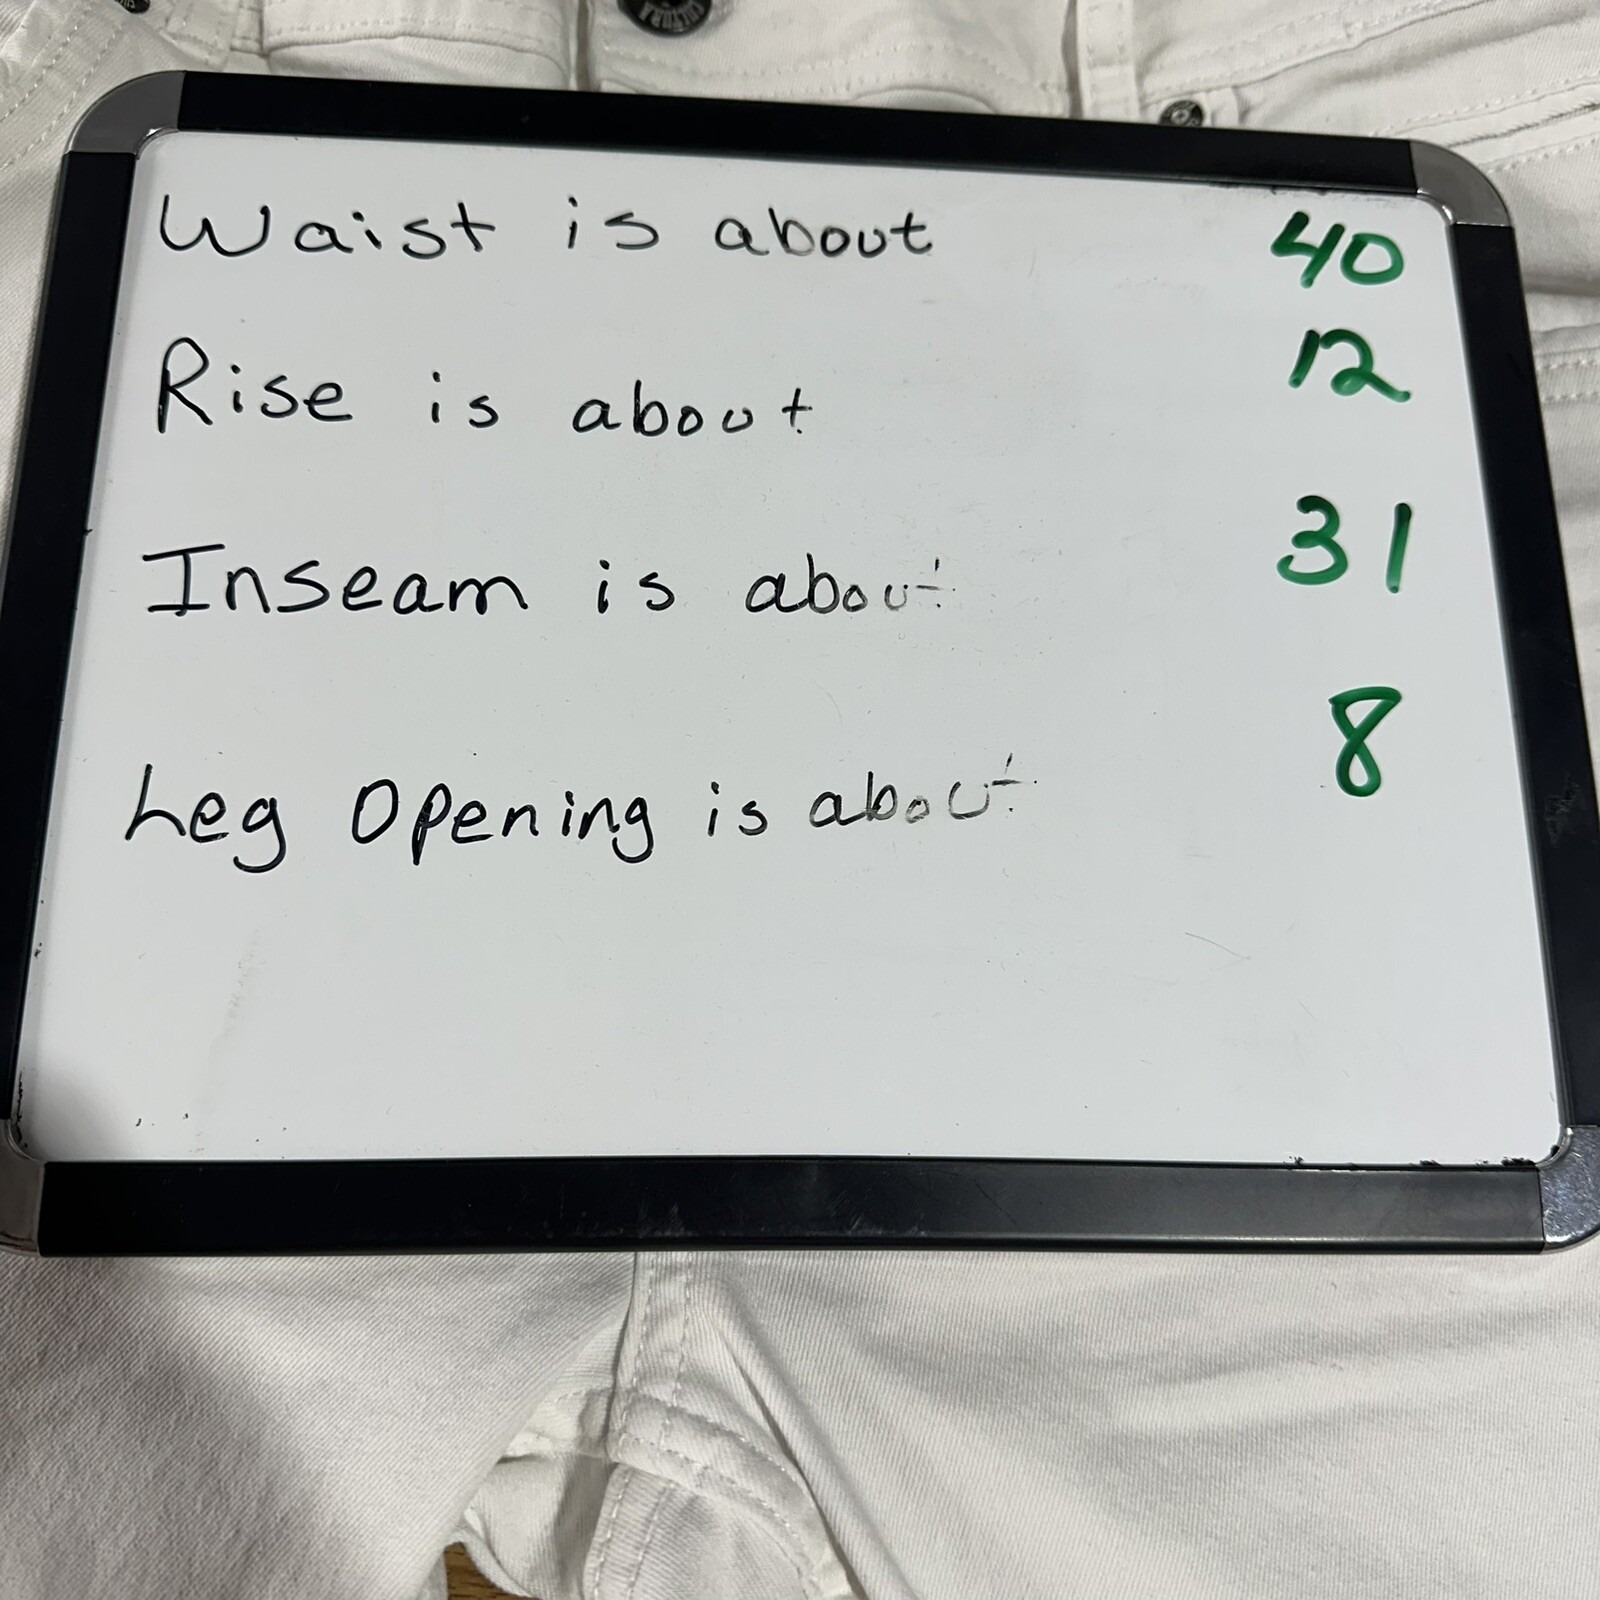 CULTURA
Waist is about 40
Rise is about 12
Inseam is about 31
Leg Opening is about 8